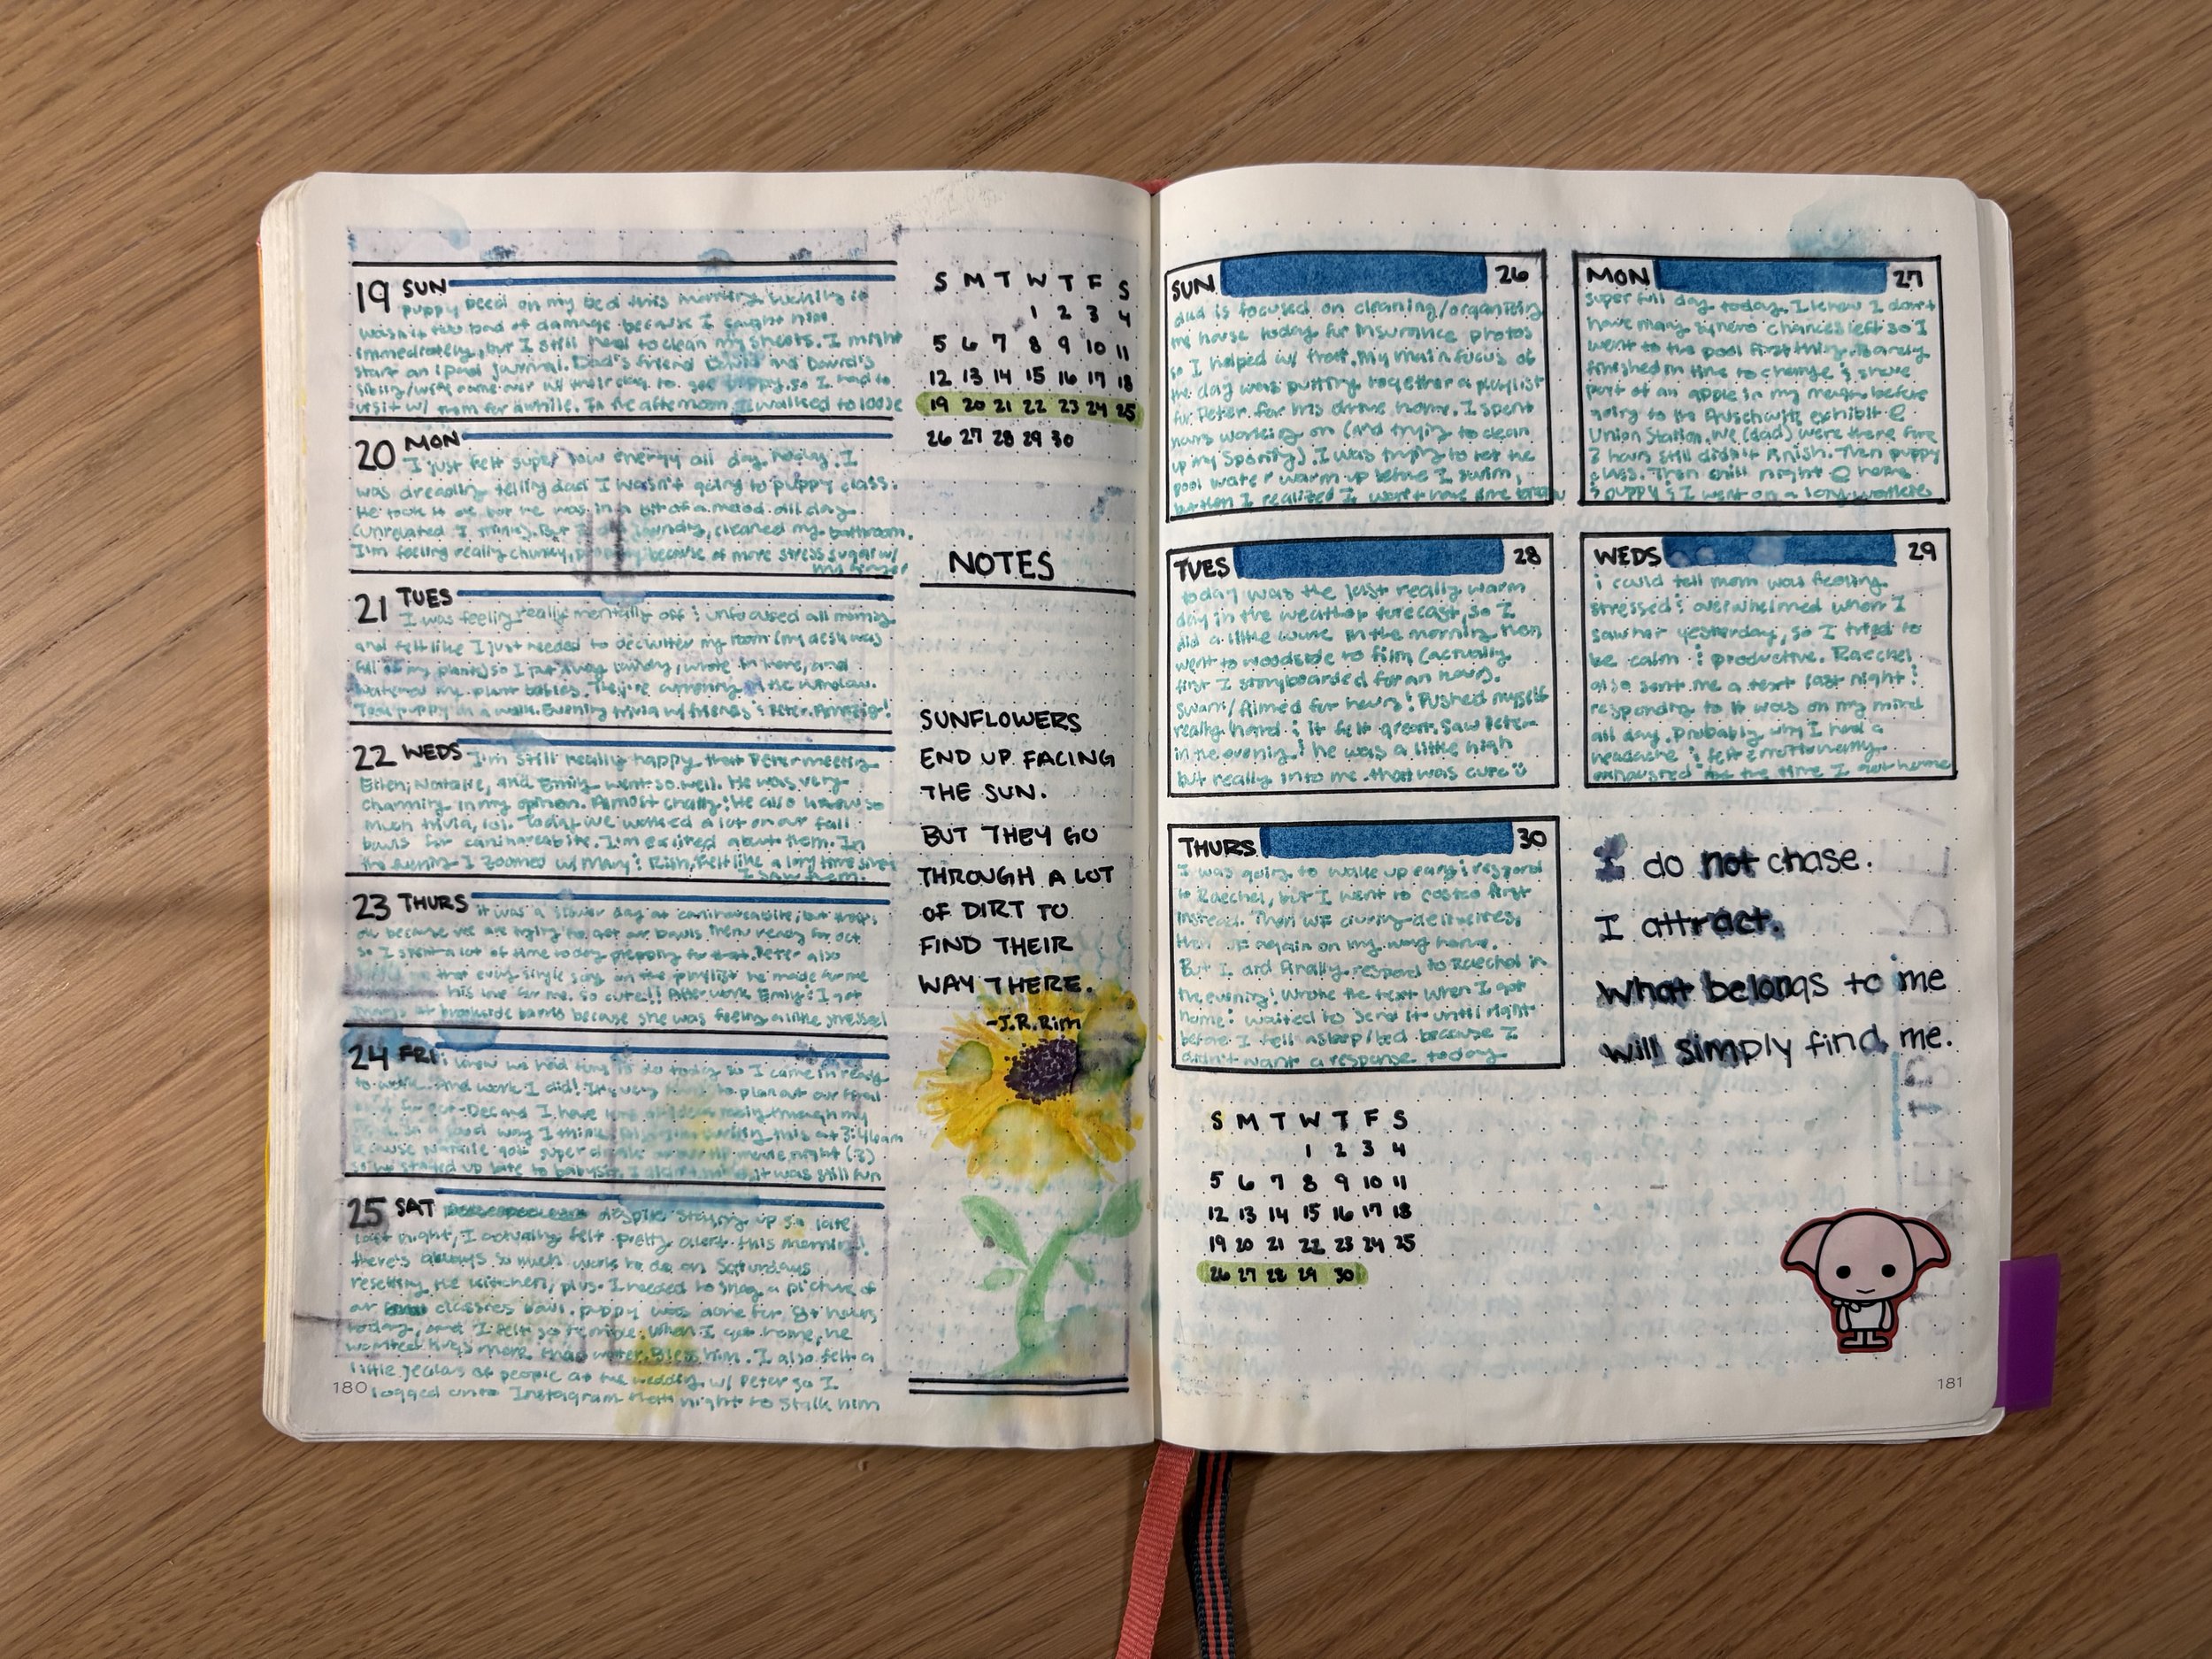 19 SUN
puppy peed on my bed this morning, luckily it
wasn't too bad of damage because I caught him
immediately, but I still need to clean my sheets. I might
start an ipad journal. Dad's friend David and David's
came over w/ their dog to see puppy, so I had to
visit w/ them for awhile. In the afternoon I walked to loose
20 MON
I just felt super low energy all day today. I
was dreading telling dad I wasn't going to puppy class.
He took it ok but he was in a bit of a mood all day
(unrelated I think). But I laundry, cleaned my bathroom.
I'm feeling really chunky, because of more stress sugar w/
my
21 TUES
I was feeling really mentally off & unfocused all morning
and felt like I just needed to declutter my room (my desk was
full of my plants) so I put away laundry, wrote in here, and
watered my plant babies. They're the window.
Took puppy on a walk. Evening trivia w/ friends & Peter. Amazing!
22 WEDS
I'm still really happy that Peter meeting
Ellen, Natalie, and Emily went so well. He was very
charming in my opinion. Almost chatty! He also knew so
much trivia, lol. Today we worked a lot on our fall
bowls for I'm excited about them. In
the evening I zoomed w/ Mary & Rish, felt like a long time since
I saw them.
23 THURS
it was a slower day at but that's
ok because we are trying to get our bowls menu ready for oct
so I spent a lot of time today prepping for that. Peter also
that every single song on the playlist he made for me
his love for me. so cute!! After work Emily & I got
at brookside because she was feeling a little stressed
24 FRI
I knew we had tons to do today so I came in ready
to work. And work I did! It's very to plan out our
for oct-Dec and I have
in a good way I think. this at 3:46am
because Natalie got super at movie night (:3)
so he stayed up late to babysit. I it was still fun
25 SAT
despite staying up so late
last night, I actually felt pretty alert this morning!
there's always so much work to do on Saturdays
resetting the kitchen, plus I needed to snag a picture of
our classics bowl. puppy was alone for 8+ hours
today, and I felt so terrible. When I got home, he
wanted hugs more than water. Bless him. I also felt a
little jealous of people at the wedding w/ Peter so I
logged onto Instagram that night to stalk him
180
S M T W T F S
1 2 3 4
5 6 7 8 9 10 11
12 13 14 15 16 17 18
19 20 21 22 23 24 25
26 27 28 29 30
NOTES
SUNFLOWERS
END UP FACING
THE SUN.
BUT THEY GO
THROUGH A LOT
OF DIRT TO
FIND THEIR
WAY THERE.
-J.R.Rim
SUN 26
dad is focused on cleaning/organizing
the house today for insurance photos
so I helped w/ that. My main focus of
the day was putting together a playlist
for Peter for his drive home. I spent
hours working on (and trying to clean
up my Spotify). I was trying to let the
pool water warm up before I swim,
but then I realized I won't have time
MON 27
super full day today. I knew I don't
have many chances left so I
went to the pool first thing. Barely
finished in time to change & shove
part of an apple in my mouth before
going to the Auschwitz exhibit @
Union Station. We (dad) were there for
3 hours still didn't finish. Then puppy
class. Then chill night @ home
& puppy & I went on a long
TUES 28
today was the last really warm
day in the weather forecast, so I
did a little work in the morning then
went to woodside to film (actually
first I storyboarded for an hour).
Swam/filmed for hours! Pushed myself
really hard & it felt great. Saw Peter
in the evening & he was a little high
but really into me. that was cute
WEDS 29
i could tell mom was feeling
stressed & overwhelmed when I
saw her yesterday, so I tried to
be calm & productive. Raechel
also sent me a text last night &
responding to it was on my mind
all day. Probably why I had a
headache & felt emotionally
exhausted by the time I got home
THURS 30
I was going to wake up early & respond
to Raechel, but I went to costco first
instead. Then WF during deliveries,
then WF again on my way home.
But I did finally respond to Raechel in
the evening! Wrote the text when I got
home & waited to send it until right
before I fell asleep/bed because I
didn't want a response today
I do not chase.
I attract.
what belongs to me
will simply find me.
S M T W T F S
1 2 3 4
5 6 7 8 9 10 11
12 13 14 15 16 17 18
19 20 21 22 23 24 25
26 27 28 29 30
181